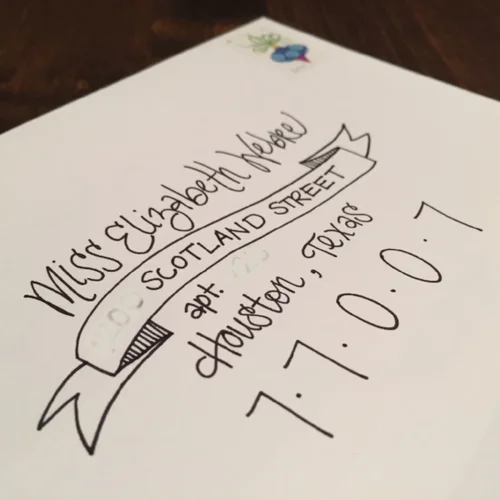 Miss Elizabeth Webre
SCOTLAND STREET
apt.
Houston, Texas
7.7.0.0.7